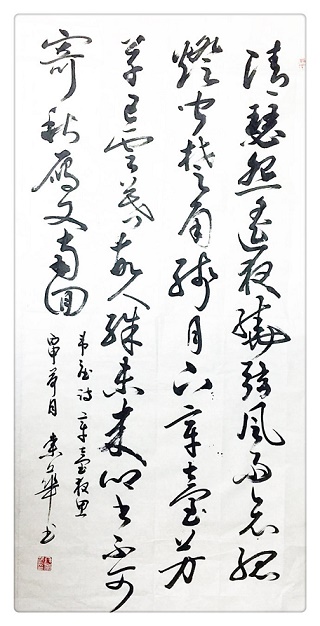 清瑟怨遙夜繞弦風雨哀孤
燈聞楚角殘月下章臺芳
草已雲暮故人殊未來鄉書不可
寄秋雁又南回
韋莊詩章臺夜思
書